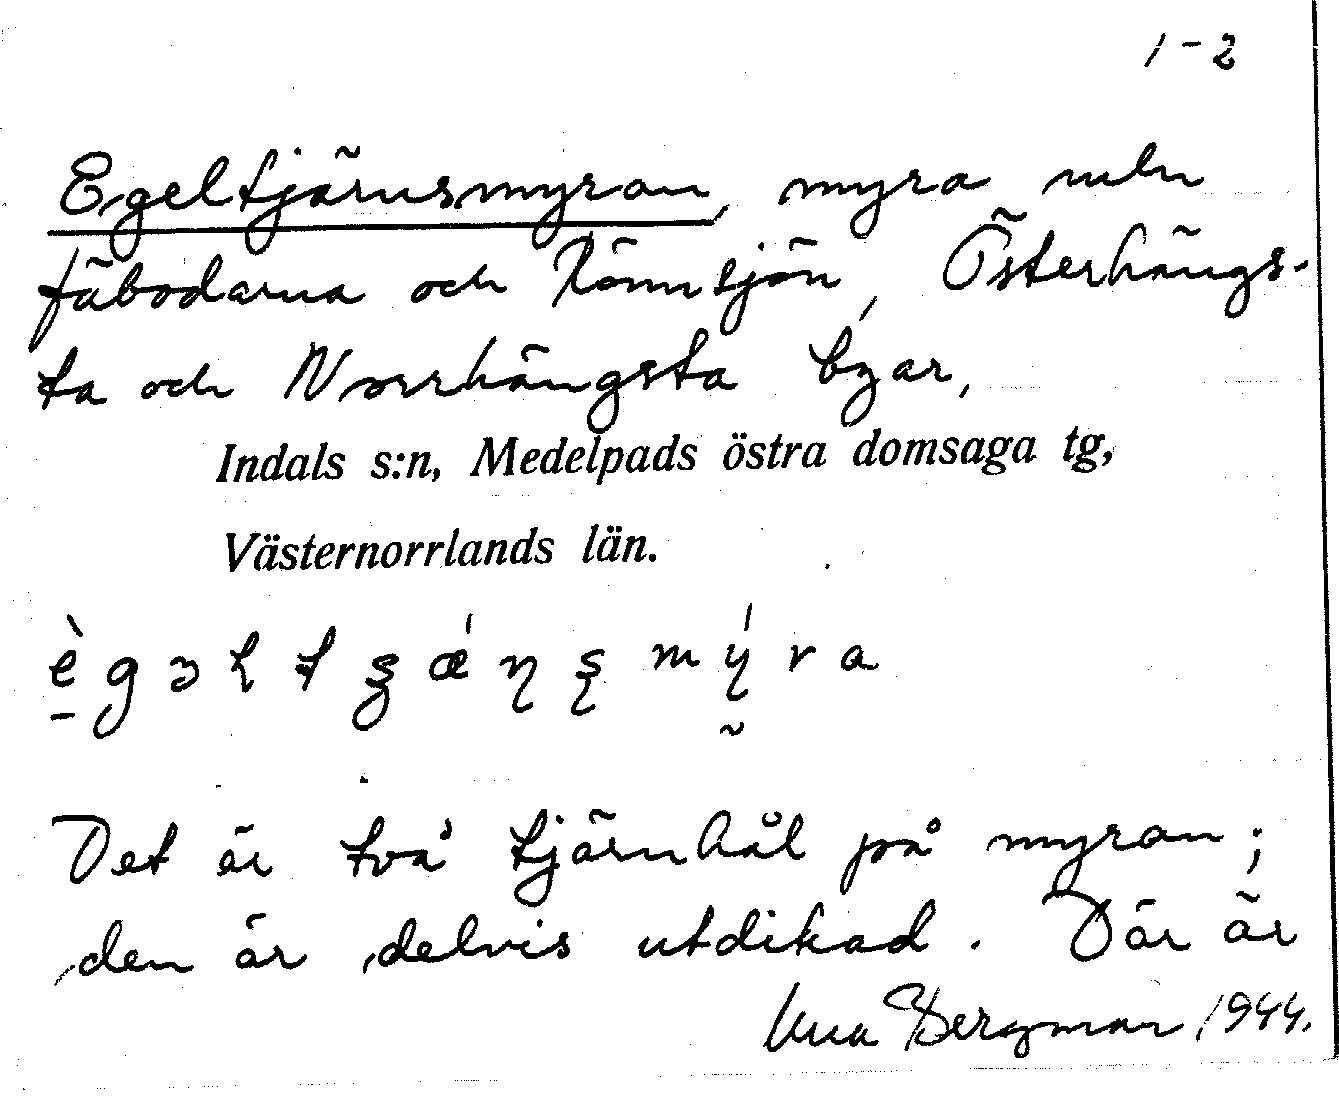 1-2
Egeltjärnsmyran, myra mln
fäbodarna och Könnsjön, Österhängs-
ta och Norrhängsta byar,
Indals s:n, Medelpads östra domsaga tg,
Västernorrlands län.
Det är två tjärnhål på myran;
den är delvis utdikad. Där är
Bergman 1944.